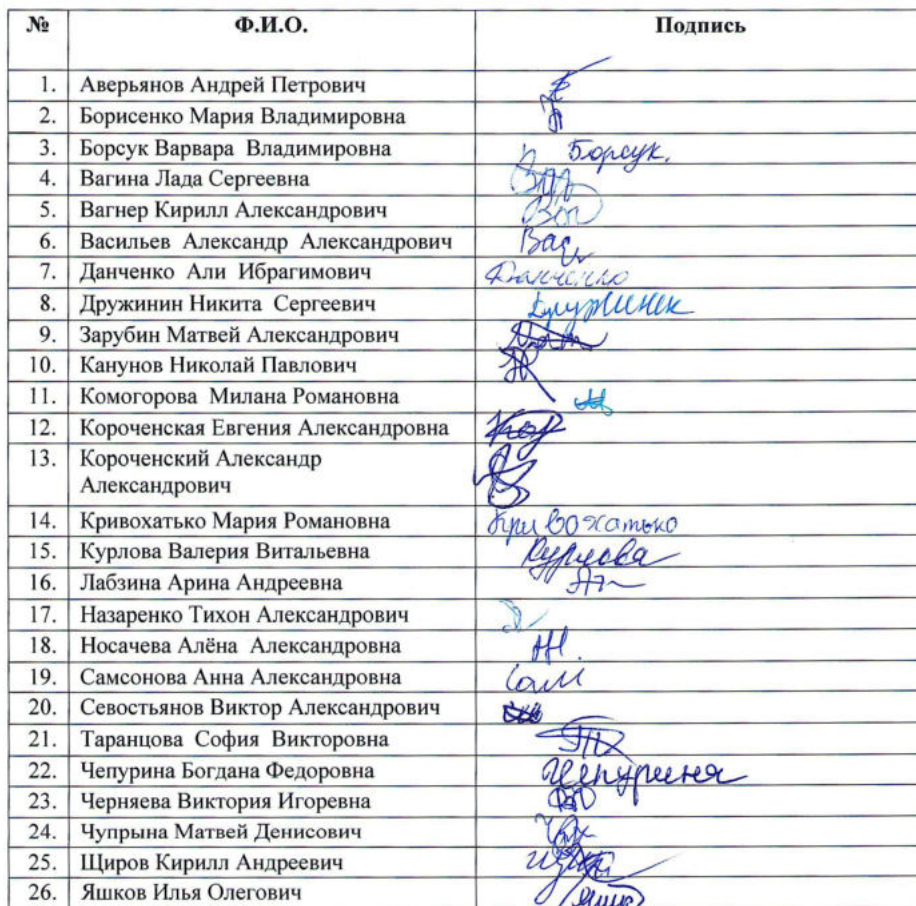 № Ф.И.О. Подпись
1. Аверьянов Андрей Петрович
2. Борисенко Мария Владимировна
3. Борсук Варвара Владимировна Борсук.
4. Вагина Лада Сергеевна
5. Вагнер Кирилл Александрович
6. Васильев Александр Александрович Вас
7. Данченко Али Ибрагимович Данченко
8. Дружинин Никита Сергеевич
9. Зарубин Матвей Александрович
10. Канунов Николай Павлович
11. Комогорова Милана Романовна
12. Короченская Евгения Александровна Кор
13. Короченский Александр
Александрович
14. Кривохатько Мария Романовна Кривохатько
15. Курлова Валерия Витальевна Курлова
16. Лабзина Арина Андреевна
17. Назаренко Тихон Александрович
18. Носачева Алёна Александровна
19. Самсонова Анна Александровна Сам
20. Севостьянов Виктор Александрович
21. Таранцова София Викторовна
22. Чепурина Богдана Федоровна Чепурина
23. Черняева Виктория Игоревна
24. Чупрына Матвей Денисович
25. Щиров Кирилл Андреевич
26. Яшков Илья Олегович